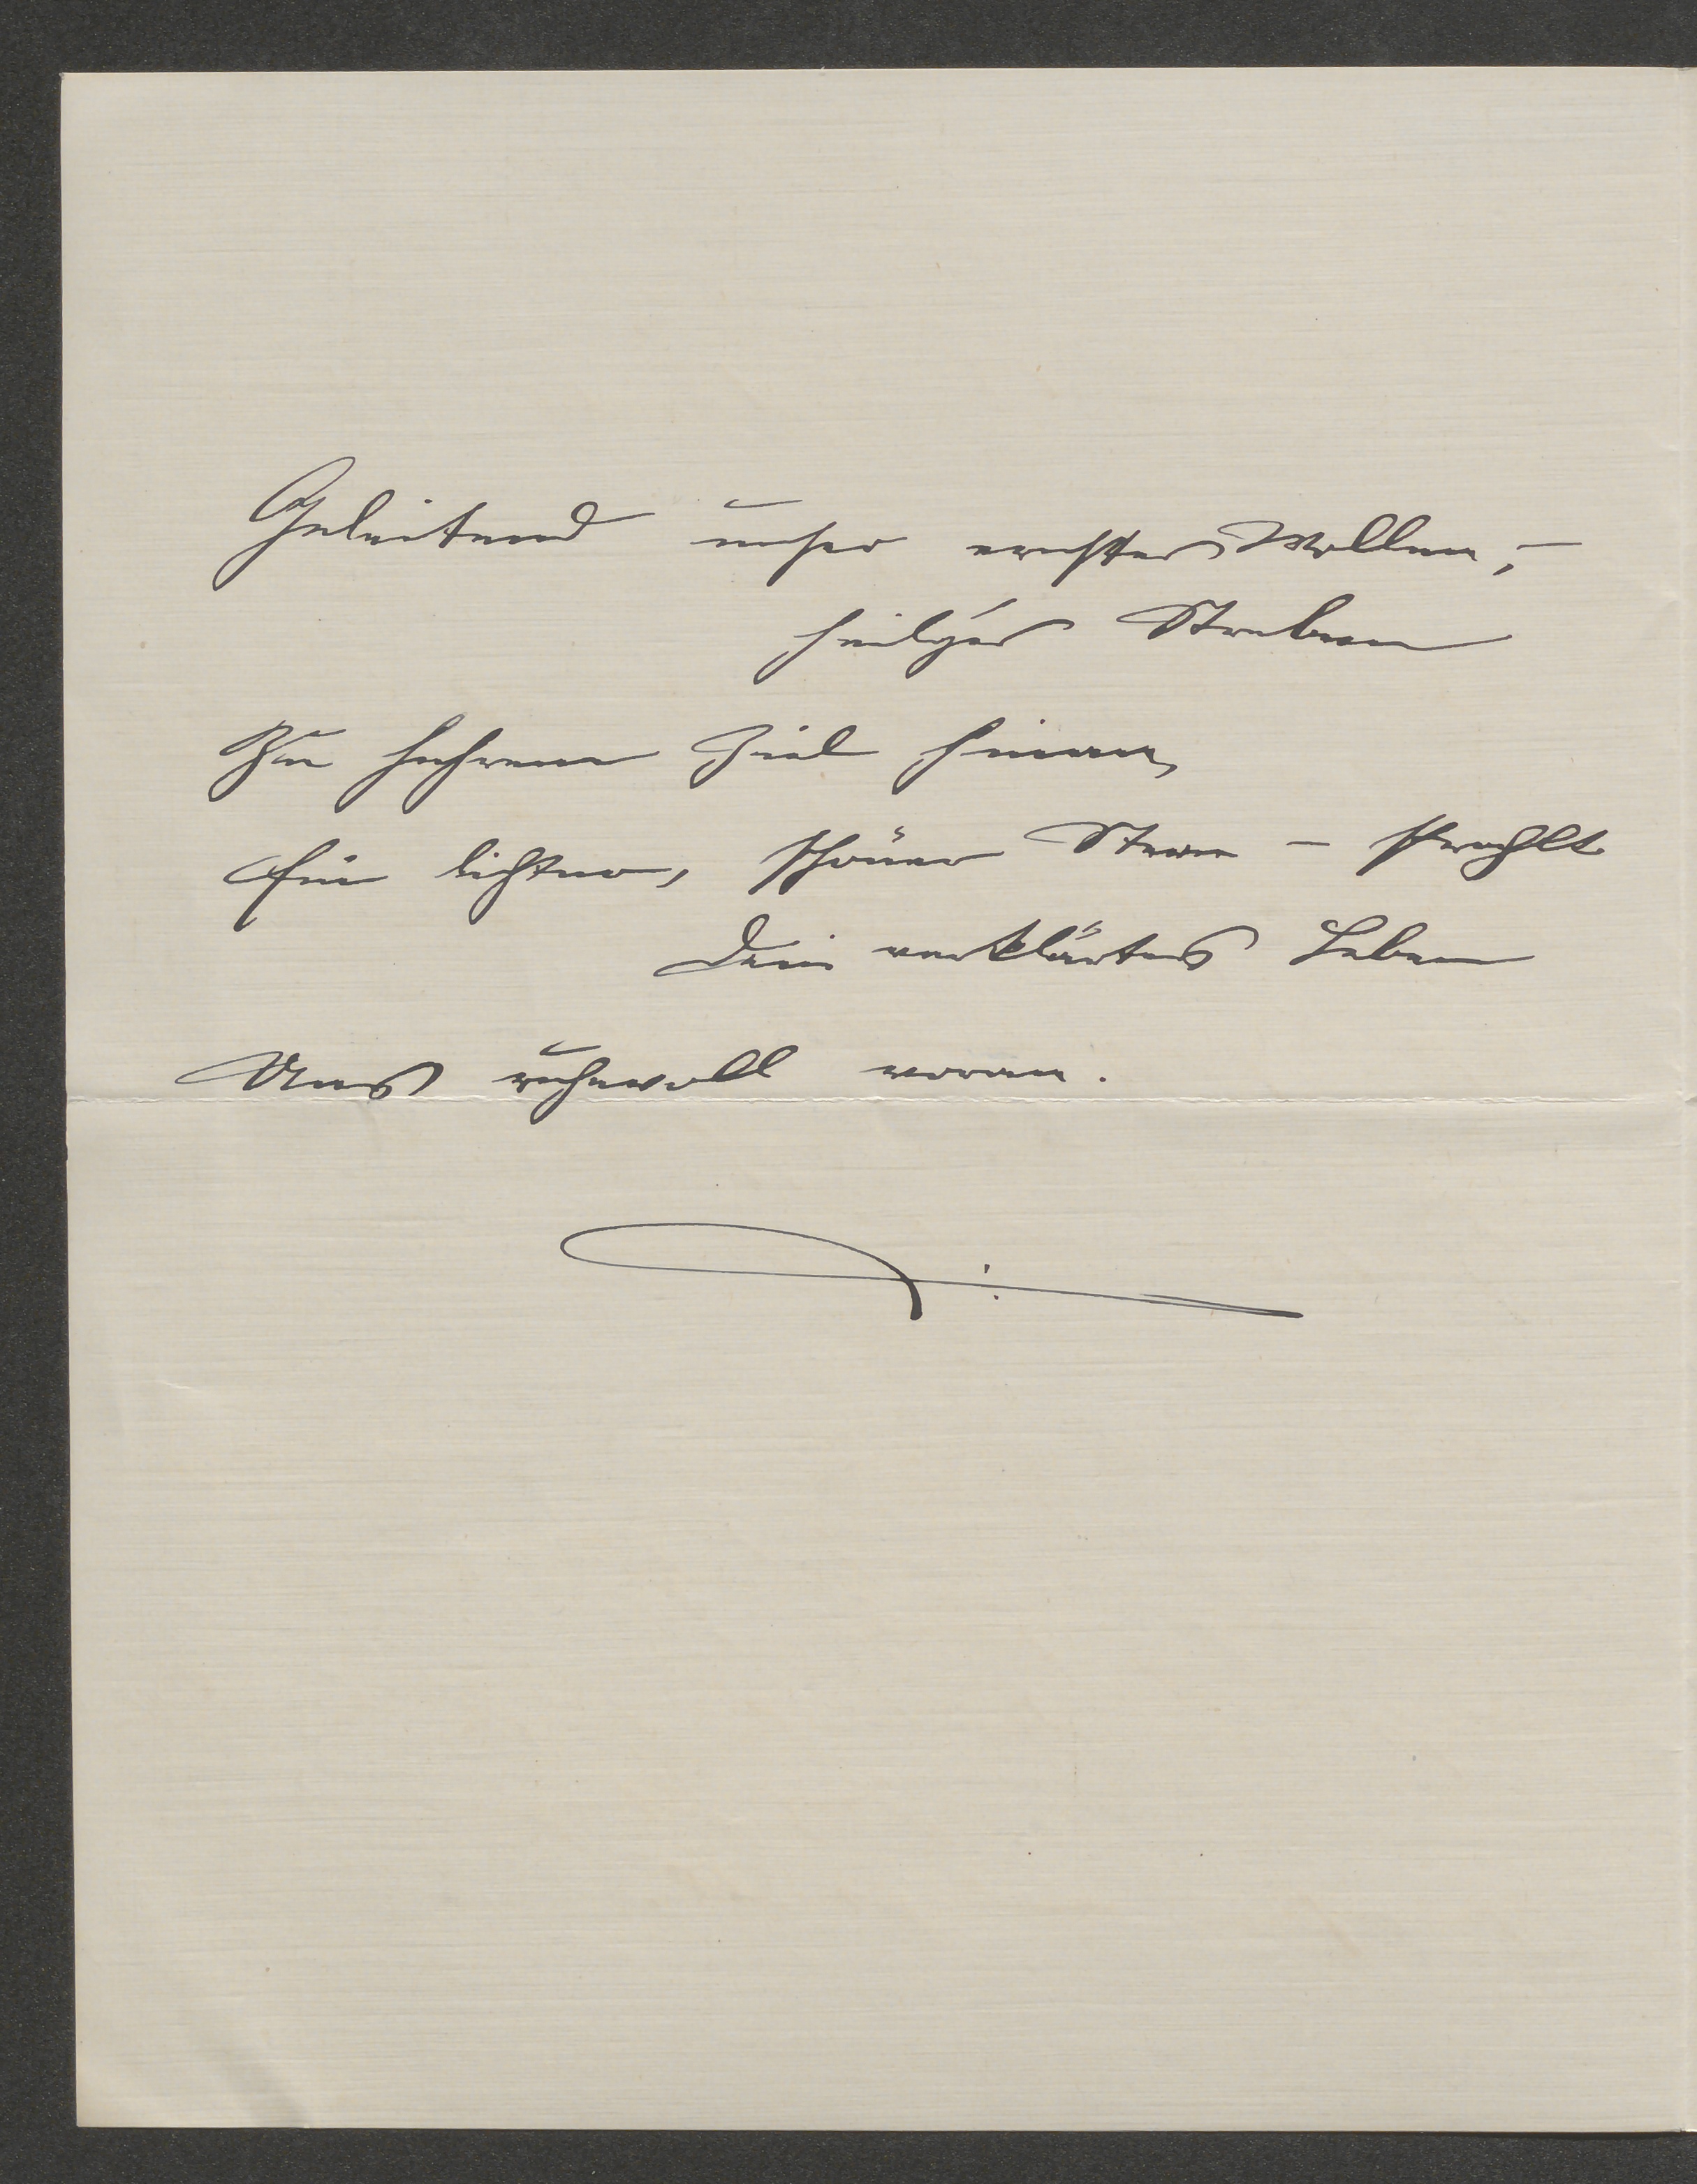 Geleitend unser ernstes Wollen, –
heil'ges Streben
Zu hehrem Ziel hinan,
Ein lichter, schöner Stern – strahlt
Dein verklärtes Leben
Uns ruhevoll voran.